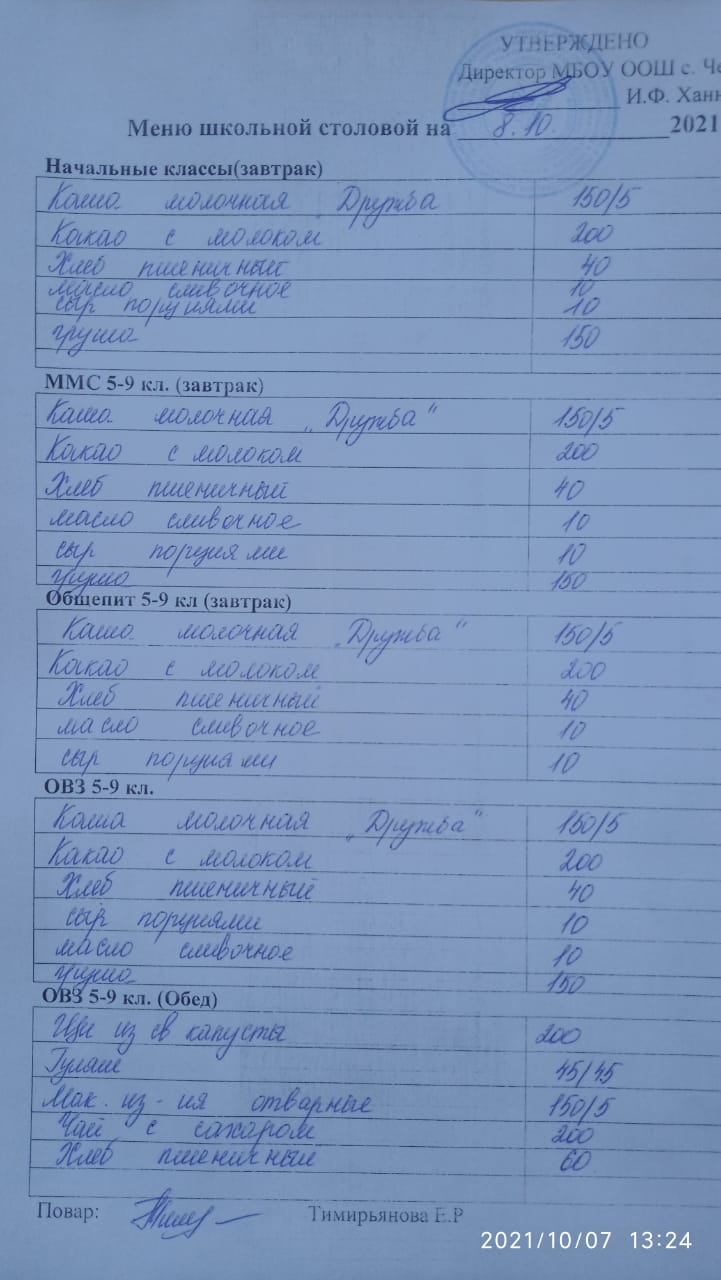 УТВЕРЖДЕНО
Директор МБОУ ООШ с. Че
И.Ф. Ханн
Меню школьной столовой на 8.10. 2021
Начальные классы(завтрак)
Каша молочная Дружба 150/5
Какао с молоком 200
Хлеб пшеничный 40
масло сливочное 10
сыр порциями 10
груша 150
ММС 5-9 кл. (завтрак)
Каша молочная „Дружба" 150/5
Какао с молоком 200
Хлеб пшеничный 40
масло сливочное 10
сыр порциями 10
груша 150
Общепит 5-9 кл (завтрак)
Каша молочная „Дружба" 150/5
Какао с молоком 200
Хлеб пшеничный 40
масло сливочное 10
сыр порциями 10
ОВЗ 5-9 кл.
Каша молочная „Дружба" 150/5
Какао с молоком 200
Хлеб пшеничный 40
сыр порциями 10
масло сливочное 10
груша 150
ОВЗ 5-9 кл. (Обед)
Щи из св капусты 200
Гуляш 45/45
Мак. из-ия отварные 150/5
Чай с сахаром 200
Хлеб пшеничный 60
Повар: Тимирьянова Е.Р
2021/10/07 13:24